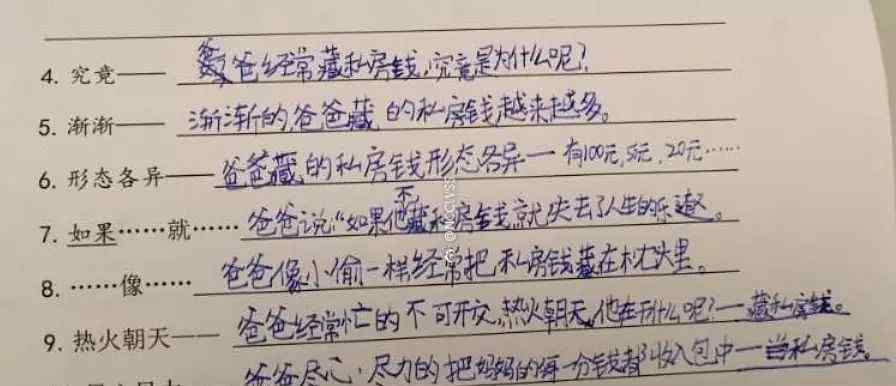 4. 究竟—— 爸爸经常藏私房钱,究竟是为什么呢?
5. 渐渐—— 渐渐的,爸爸藏的私房钱越来越多。
6. 形态各异—— 爸爸藏的私房钱形态各异一有100元,5元,20元……
7. 如果……就…… 爸爸说:“如果他不藏私房钱,就失去了人生的乐趣。
8. ……像…… 爸爸像小偷一样经常把私房钱藏在枕头里。
9. 热火朝天—— 爸爸经常忙的不可开交,热火朝天,他在干什么呢?一藏私房钱。
爸爸尽心尽力的把妈妈的每一分钱都收入包中一当私房钱。